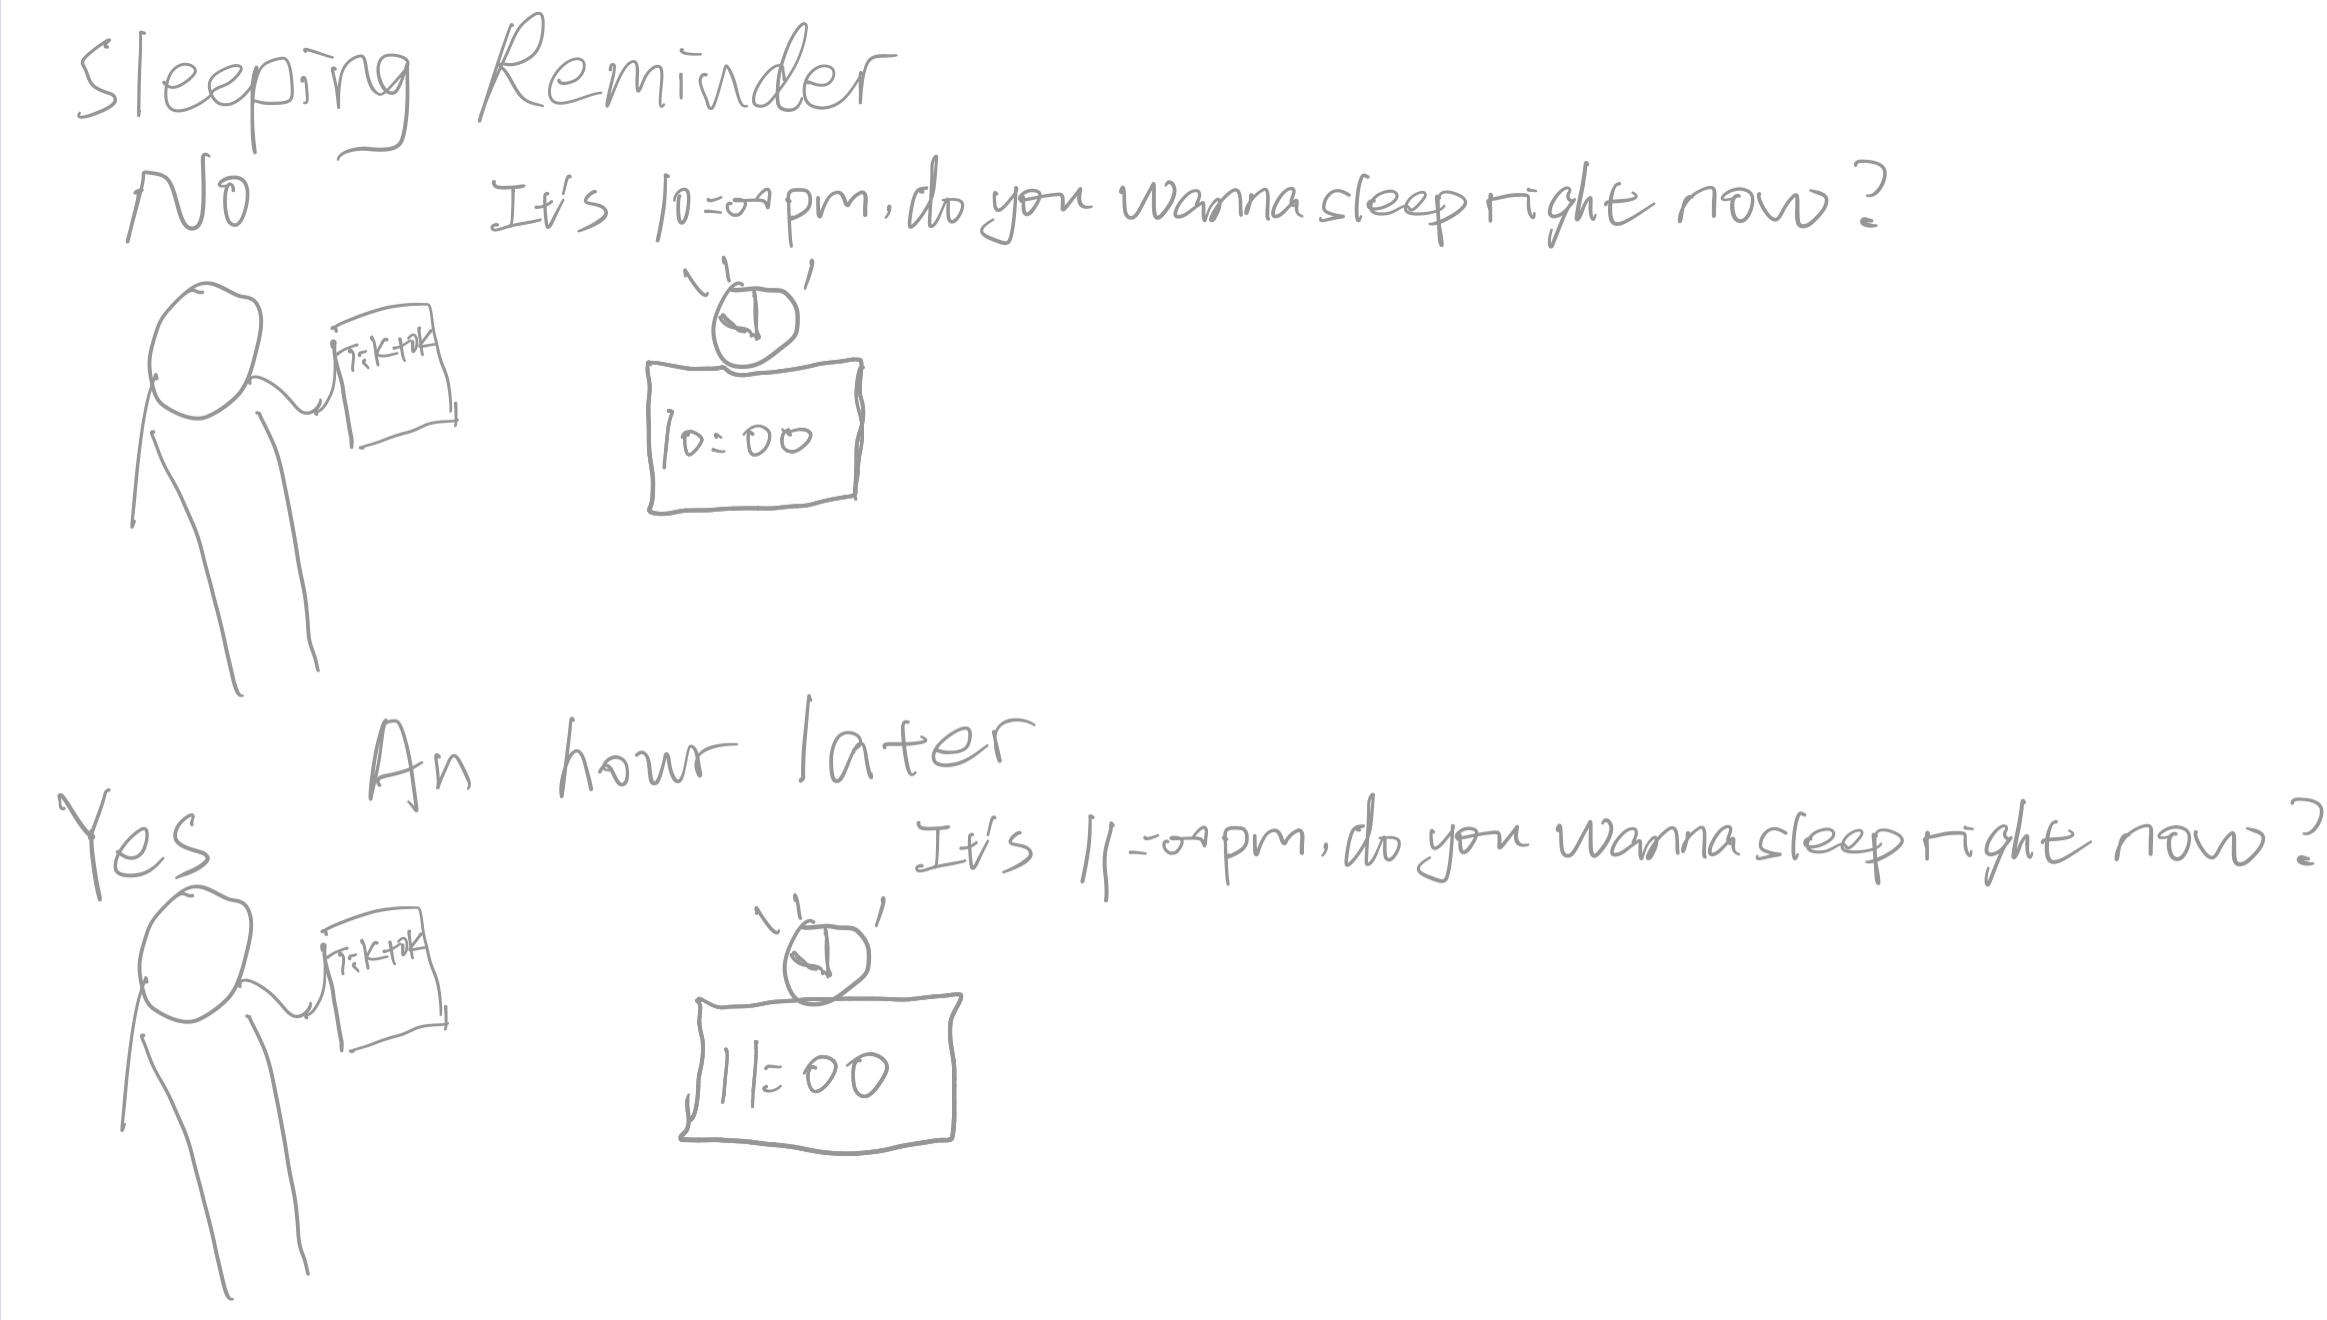 Sleeping Reminder
No
It's 10:00 pm, do you wanna sleep right now?
TikTok
10:00
An hour later
Yes
It's 11:00 pm, do you wanna sleep right now?
TikTok
11:00